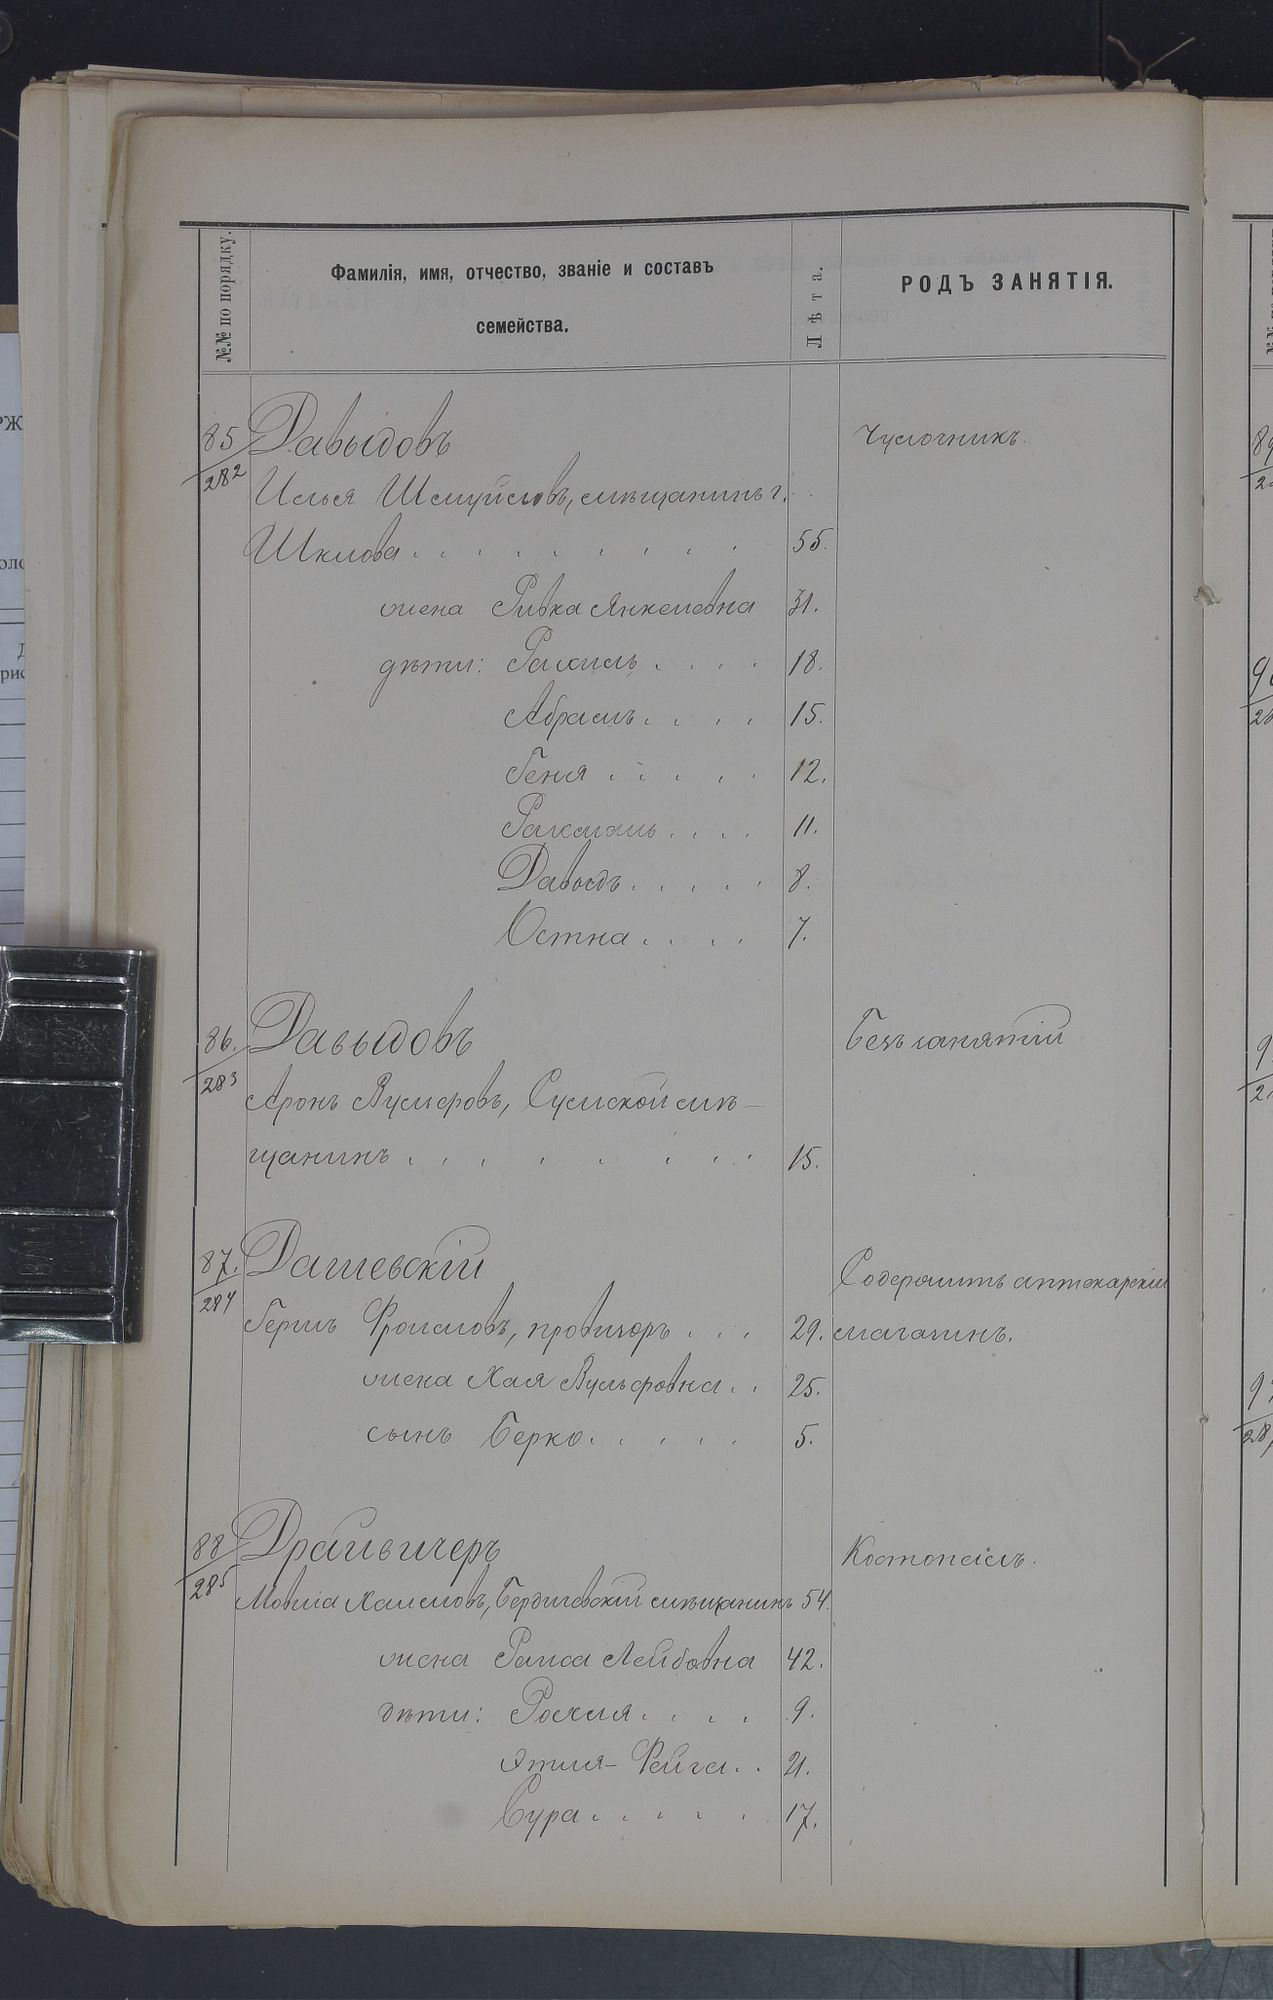 №№ по порядку.
Фамилія, имя, отчество, званіе и составъ
семейства.
Лѣта.
РОДЪ ЗАНЯТІЯ.
85/282 Давыдовъ Чулочникъ.
Илья Шмуйловъ, мѣщанинъ г.
Шклова 55.
жена Ривка Янкелевна 31.
дѣти: Рахиль 18.
Абрамъ 15.
Геня 12.
11.
Давыдъ 8.
Остна 7.
86./283 Давыдовъ Безъ занятій
Аронъ Вульфовъ, Сумской мѣ-
щанинъ 15.
87./284 Дашевскій Содержитъ аптекарскій
Гершъ Фроимовъ, провизоръ 29. магазинъ.
жена Хая Вульфовна 25.
сынъ Берко 5.
88/285 Драйвичеръ
Мовша Хаимовъ, Бердичевскій мѣщанинъ 54.
жена Раиса Лейбовна 42.
дѣти: Рохля 9.
Этля-Фейга 21.
Сура 17.